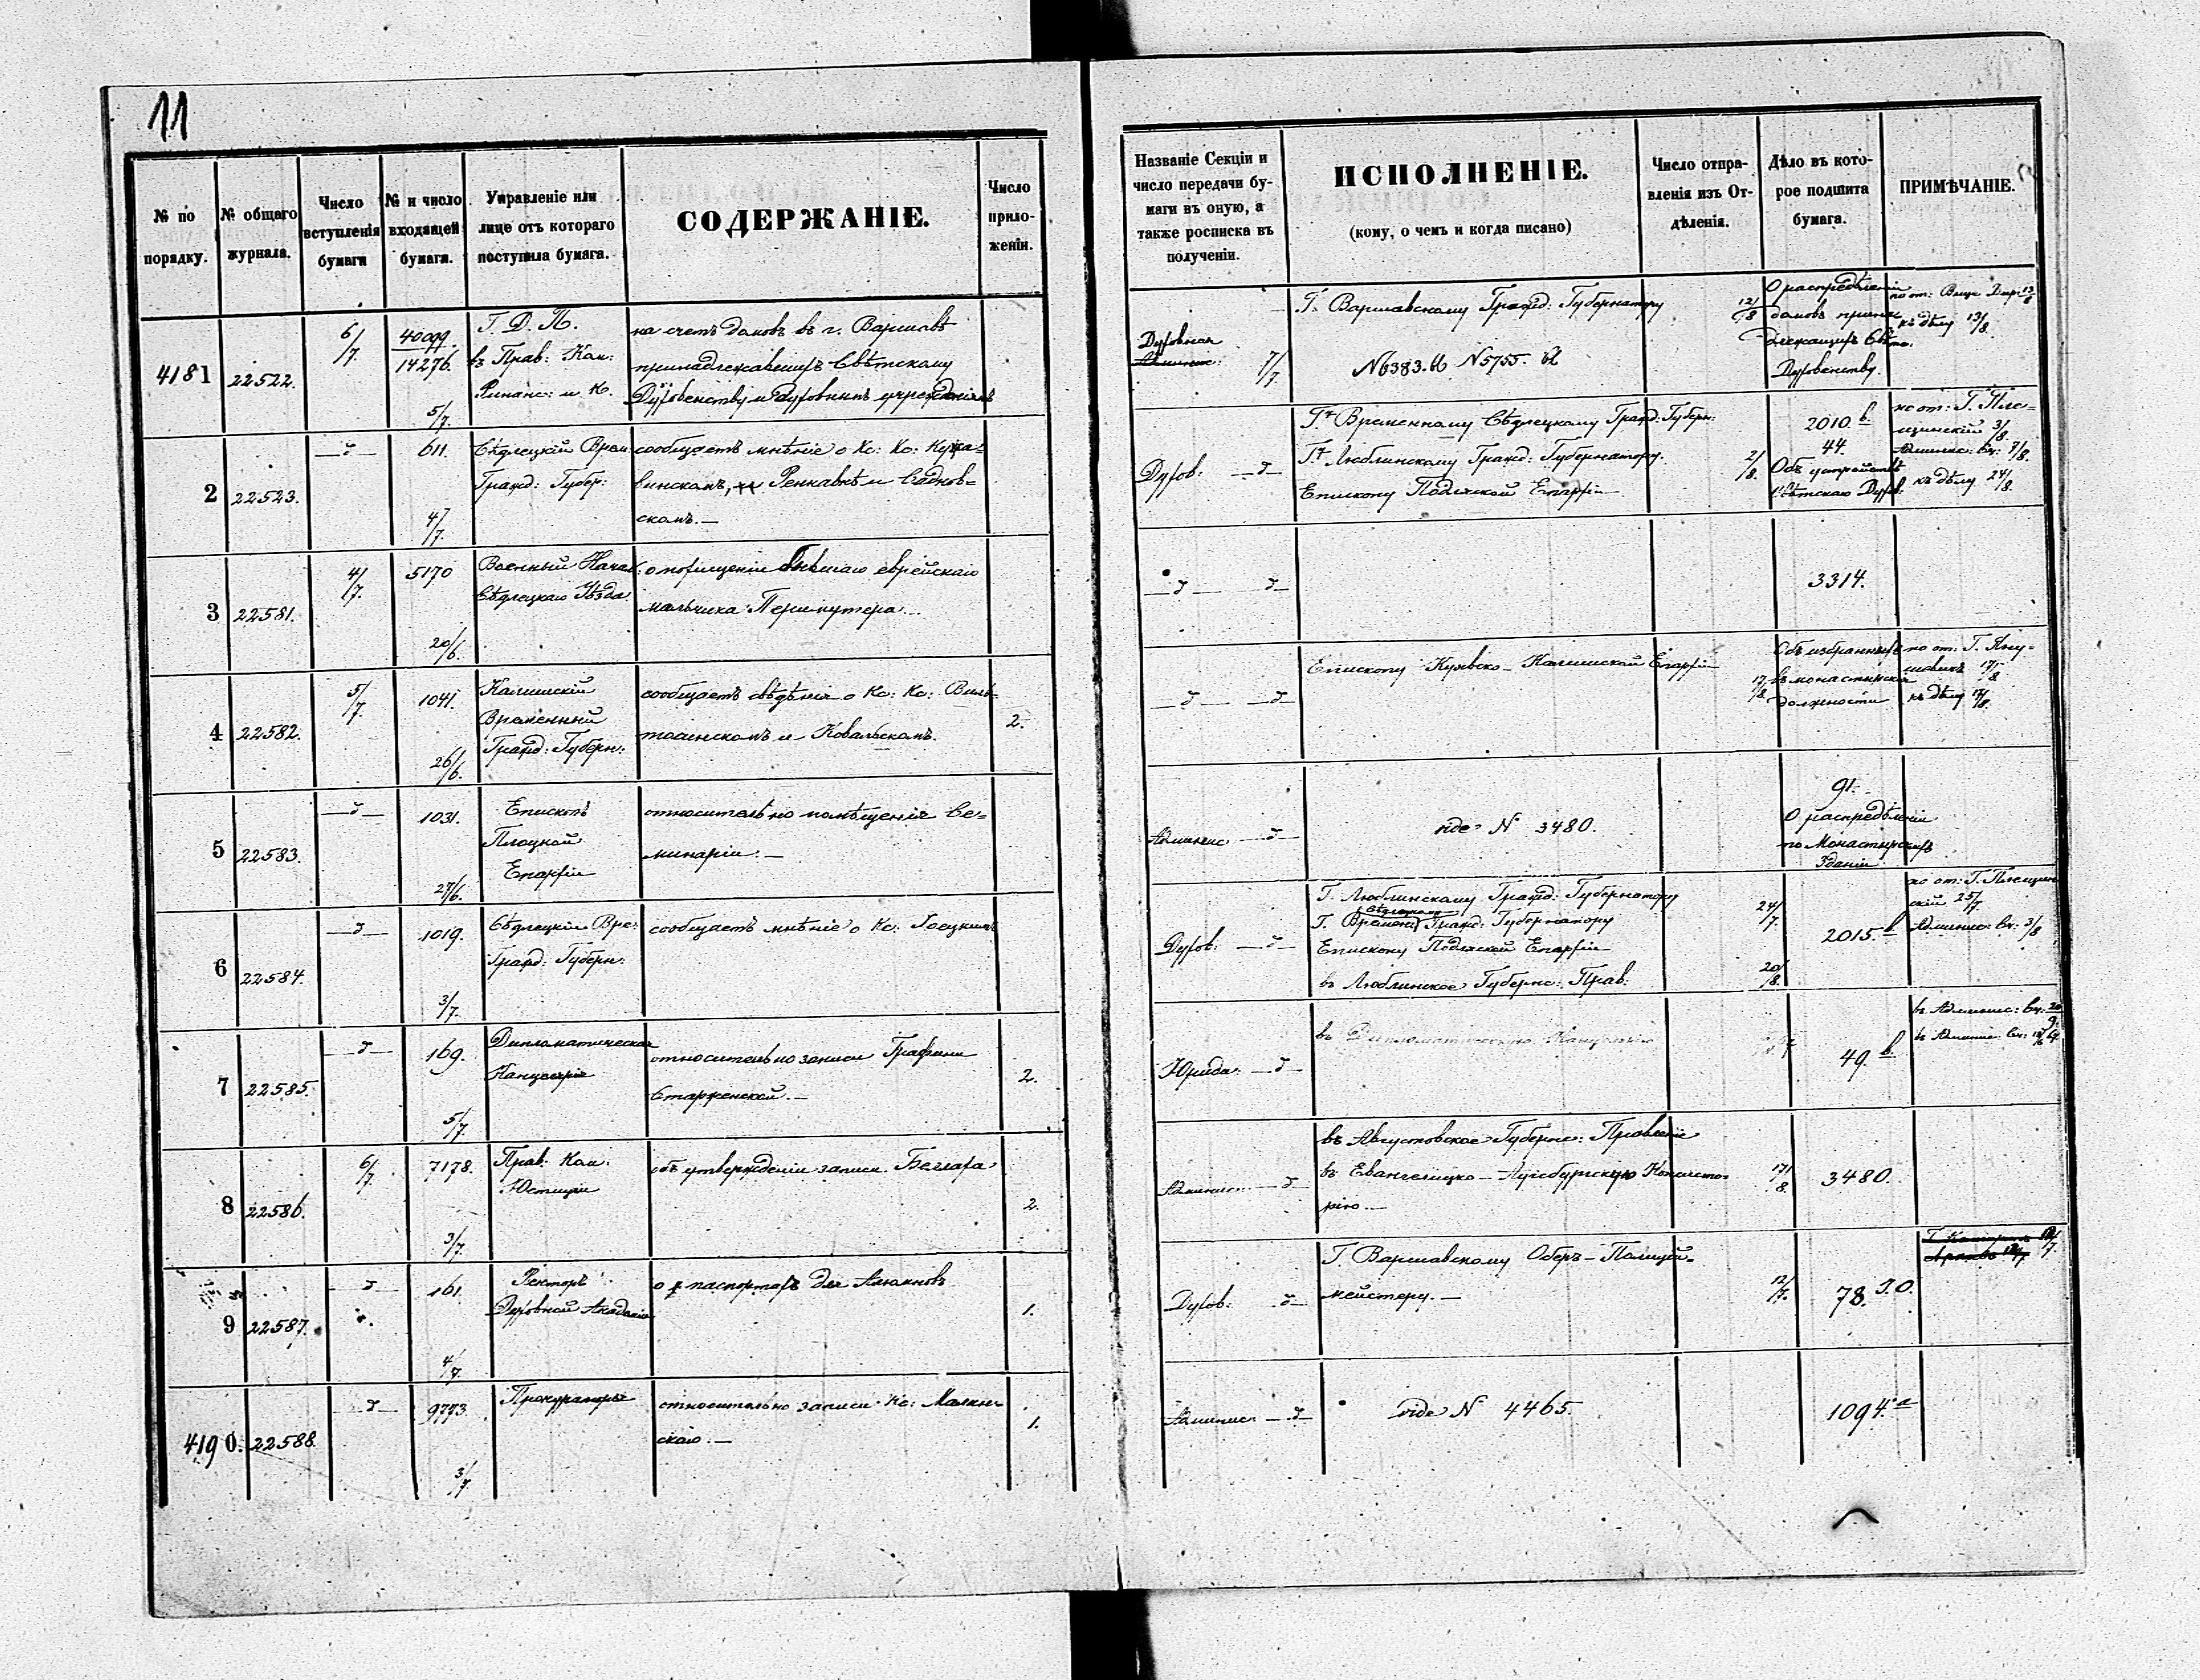 11
№ по порядку.
№ общаго журнала.
Число вступленія бумаги
№ и число входящей бумаги.
Управленіе или лице отъ котораго поступила бумага.
СОДЕРЖАНІЕ.
Число приложеній.
Названіе Секціи и число передачи бумаги въ оную, а также росписка въ полученіи.
ИСПОЛНЕНІЕ.
(кому, о чемъ и когда писано)
Число отправленія изъ Отдѣленія.
Дѣло въ которое подшита бумага.
ПРИМѢЧАНІЕ.
4181 22522. 6/7. 40099. 14276. 5/7.
Г. Д. П.
въ Прав: Ком:
Финанс: и К.
на счетъ домовъ въ г. Варшавѣ
принадлежавшихъ Свѣтскому
Духовенству и Духовнымъ учрежденіямъ
Духовная
7/7.
Г. Варшавскому Гражд: Губернатору
N 6383. N 5755.
12/8
О распредѣленіи
домовъ принад
лежащихъ Свѣтс.
Духовенству.
къ дѣлу 13/8.
2 22523. — д — 611. 4/7.
Сѣдлецкій Врем:
Гражд: Губер:
сообщаетъ мнѣніе о Кс: Кс:
винскомъ, Реннавкѣ и Садков-
скомъ.—
Духов: — д —
Гну Временному Сѣдлецкому Гражд: Губерн:
Гну Люблинскому Гражд: Губернатору.
Епископу Подляской Епархіи
2/8.
2010. в
44.
Объ устройствѣ
Свѣтскаго Духов:
по от: Г. Пле-
щинскій 3/8.
Админис: Вч: 7/8.
къ дѣлу 24/8.
3 22581. 4/7. 5170 20/6.
Военный Начал:
Сѣдлецкаго Уѣзда.
о похищеніи бывшаго еврейскаго
мальчика Перлмутера.—
— д — д —
3314.
4 22582. 5/7. 1041. 26/6.
Калишскій
Временный
Гражд: Губерн:
сообщаетъ свѣдѣнія о Кс: Кс:
и Ковальскомъ.
2.
— д — — д —
Епископу Куявско-Калишской Епархіи
17/8.
Объ избранныхъ
въ монастырскія
должности
по от: Г. Яну-
шевичъ 17/8
къ дѣлу 17/8.
5 22583. — д — 1031. 27/6.
Епископъ
Плоцкой
Епархіи
относительно помѣщенія Се-
минаріи.—
Админис — д —
vide N 3480.
91.
О распредѣленіи
по Монастырскихъ
Зданій
6 22584. — д — 1019. 3/7.
Сѣдлецкій Вре:
Гражд: Губерн:
сообщаетъ мнѣніе о Кс:
Духов: — д —
Г. Люблинскому Гражд: Губернатору
Сѣдлецкому
Г. Времен: Гражд: Губернатору
Епископу Подляской Епархіи
въ Люблинское Губернс: Прав:
24/7
20/8.
2015. в
по от: Г. Плещин-
скій 25/7
Админис: Вч: 3/8
7 22585. — д — 169. 5/7.
Дипломатическая
Канцелярія
относительно записи Графини
Старженской.—
2.
Юрида: — д —
въ Дипломатическую Канцелярію
49. в
въ Админис: Вч: 20/9.
8 22586. 6/7. 7178. 3/7.
Прав. Ком.
Юстиціи
объ утвержденіи записи Беглера
2.
Админис: — д —
въ Августовское Губернс: Правленіе
въ Евангелицко-Аугсбургскую Консисто-
рію.—
17/8.
3480.
9 22587. — д — 161. 4/7.
Ректоръ
Духовной Академіи
о паспортахъ для
1.
Духов: — д —
Г. Варшавскому Оберъ-Полицій-
мейстеру.—
12/7.
78. J.O.
4190. 22588. — д — 9773. 3/7.
Прокураторія
относительно записи Кс:
скаго.—
1.
Админис — д —
vide N 4465.
1094. а